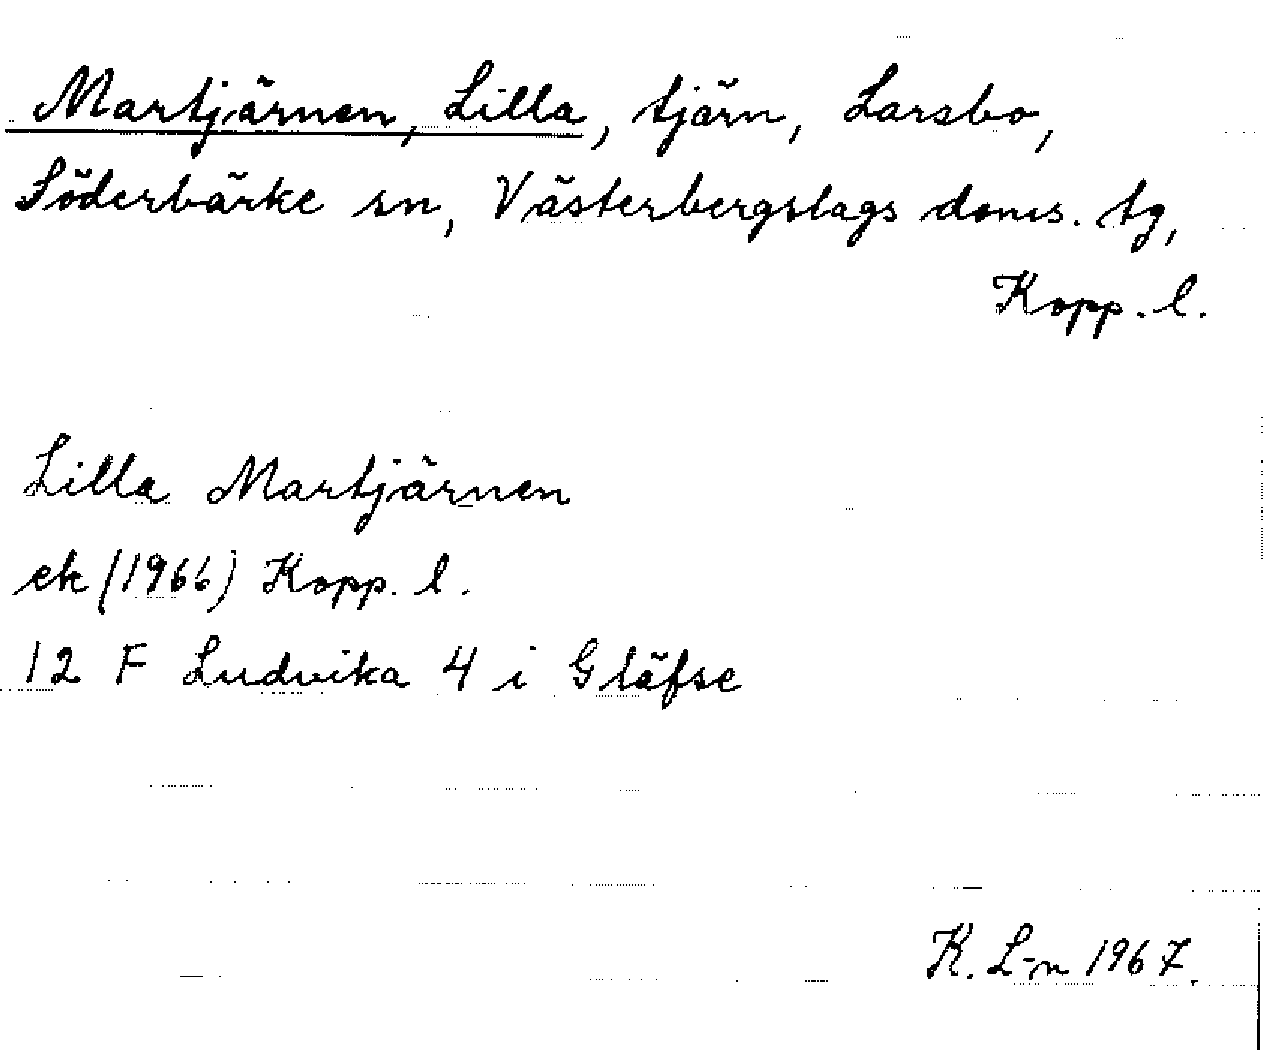 Martjärnen, Lilla, tjärn, Larsbo,
Söderbärke sn, Västerbergslags doms. tg,
Kopp. l.
Lilla Martjärnen
ek (1966) Kopp. l.
12 F Ludvika 4 i Gläfse
K. L-n 1967.